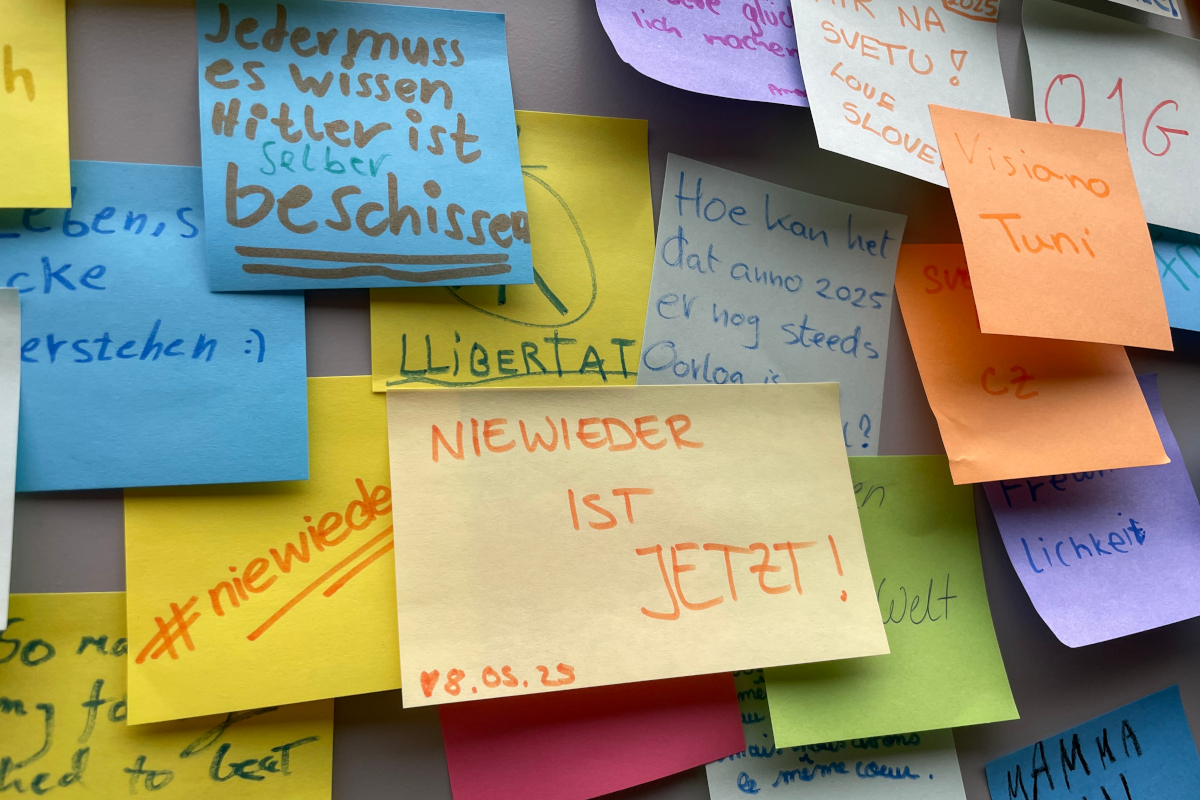 h
Jeder muss
es wissen
Hitler ist
selber
beschissen
lich machen
MIR NA
2025
SVETU!
LOVE
O1G
Visiano
Tuni
cke
erstehen :)
LLiBERTAT
Hoe kan het
dat anno 2025
er nog steeds
Oorlog is
?
CZ
lichkeit
#niewiede
NIEWIEDER
IST
JETZT!
♥8.05.25
en
Welt
So
to beat
le même cœur.
MAMMA